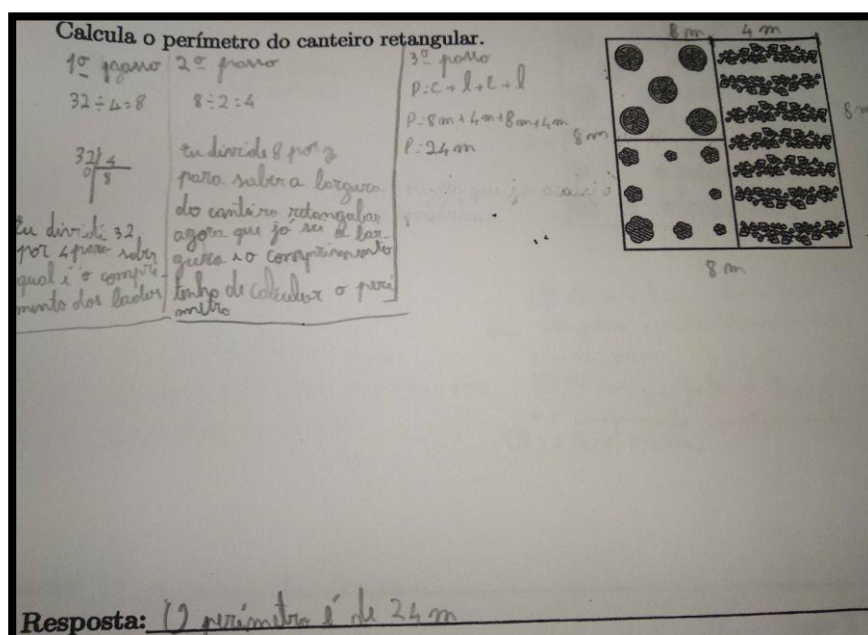 Calcula o perímetro do canteiro retangular.
1º passo
32 ÷ 4 = 8
32 4
0 8
Eu dividi 32
por 4 para saber
qual é o compri-
mento dos lados
2º passo
8 ÷ 2 = 4
Eu dividi 8 por 2
para saber a largura
do canteiro retangular
agora que já sei a lar-
gura e o comprimento
tenho de calcular o perí
metro
3º passo
P= c + l + c + l
P= 8 m + 4 m + 8 m + 4 m
P= 24 m
8 m 4 m
8 m
8 m
8 m
Resposta: O perímetro é de 24 m